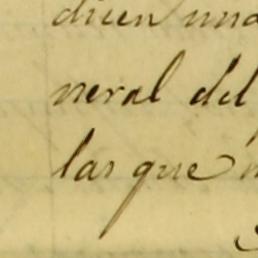 dicen una
neral del
las que